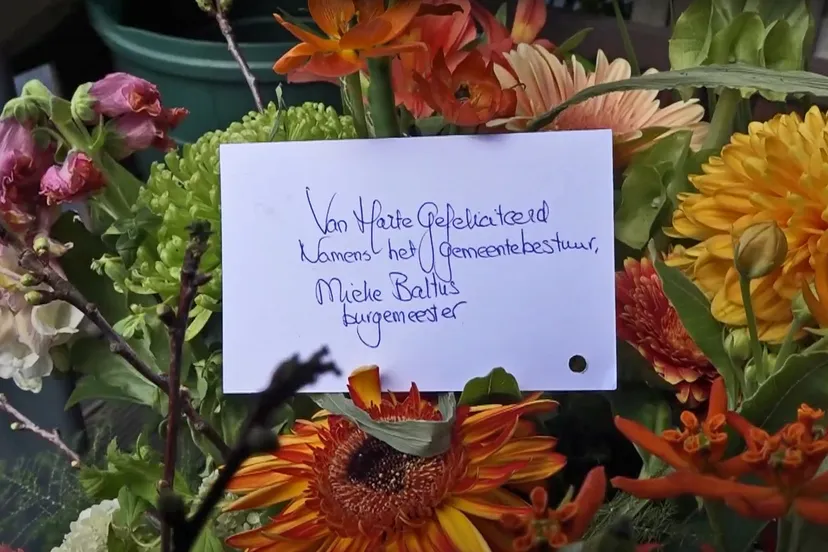 Van Harte Gefeliciteerd
Namens het gemeentebestuur,
Mieke Baltus
burgemeester